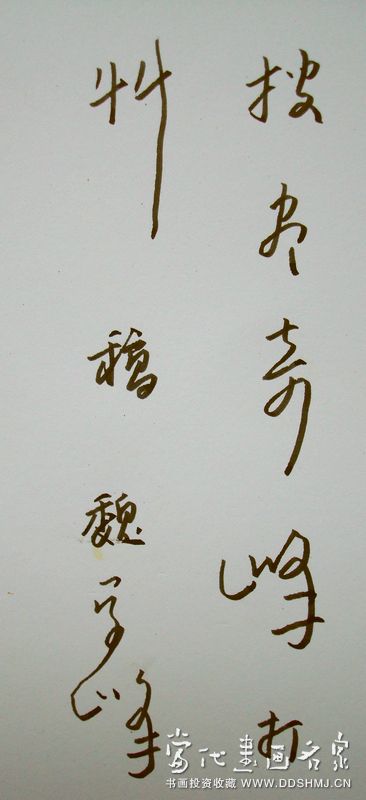 搜尽奇峰打
艸稿魏学峰
当代书画名家
书画投资收藏 WWW.DDSHMJ.CN